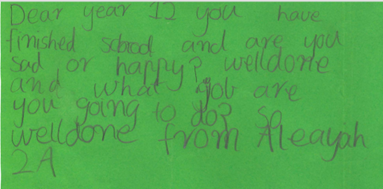 Dear year 12 you have
finished school and are you
sad or happy? welldone
and what job are
you going to do? so
welldone from Aleayah
2A